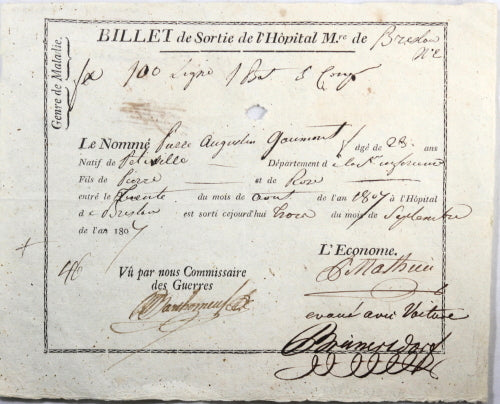 BILLET de Sortie de l'Hôpital M.re de Breslau
N° 2
Genre de Maladie.
100 Ligne 1 Bat 5 Comp
Le Nommé Pierre Augustin Gaumont âgé de 28 ans
Natif de Département d e la S.re inferieure
Fils de Pierre et de Rose
entré le trente du mois de aout de l'an 1807 à l'Hôpital
d e Breslau est sorti cejourd'hui trois du mois de Septembre
de l'an 1807
L'Econome.
46
Vû par nous Commissaire
des Guerres
Mathieu
evacué avec Voiture